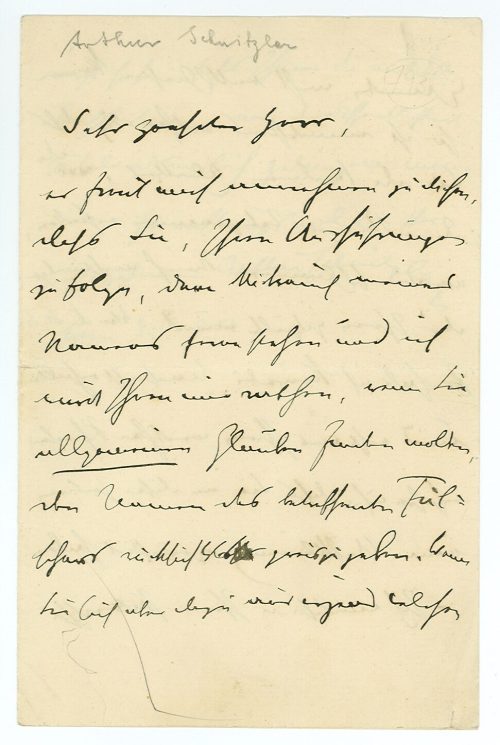 Arthur Schnitzler
Sehr geehrter Herr,
es freut mich annehmen zu dürfen,
dass Sie, Ihren Ausführungen
zufolge, dem Missbrauch meines
Namens fern stehen und ich
würde Ihnen nur rathen, wenn Sie
allgemeinen Glauben finden wollen,
den Namen des betreffenden Fäl-
schers rücksichtslos preiszugeben. Wenn
Sie sich aber dazu